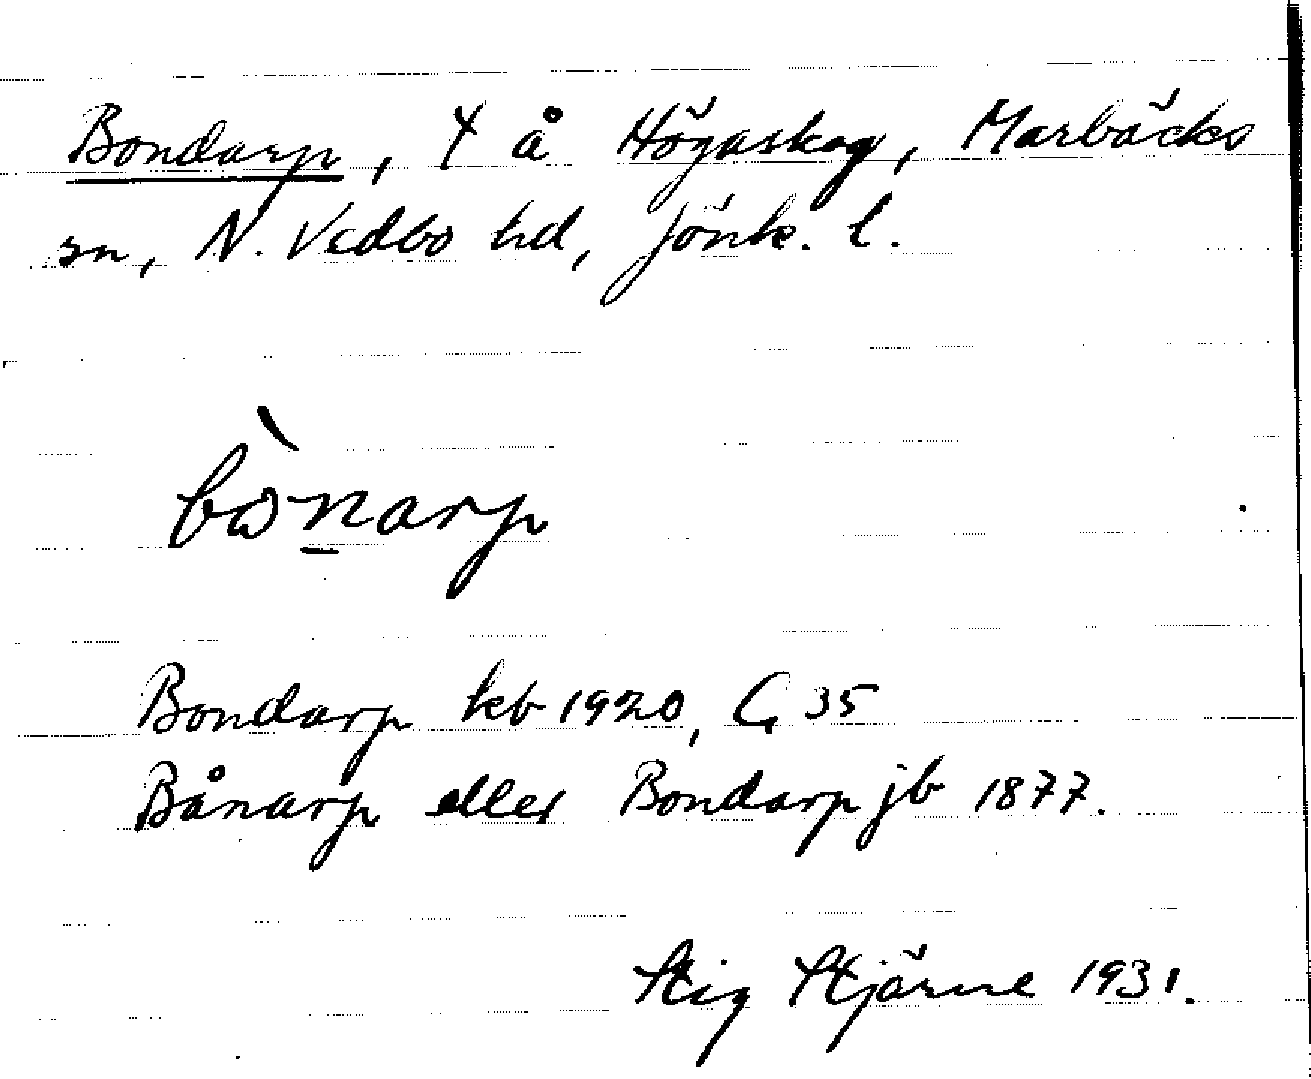 Bondarp, † å Högaskog, Marbäcks
sn, N. Vedbo hd, Jönk. l.
bònarp
Bondarp kb 1920, C 35
Bånarp eller Bondarp jb 1877.
Stig Stjärne 1931.